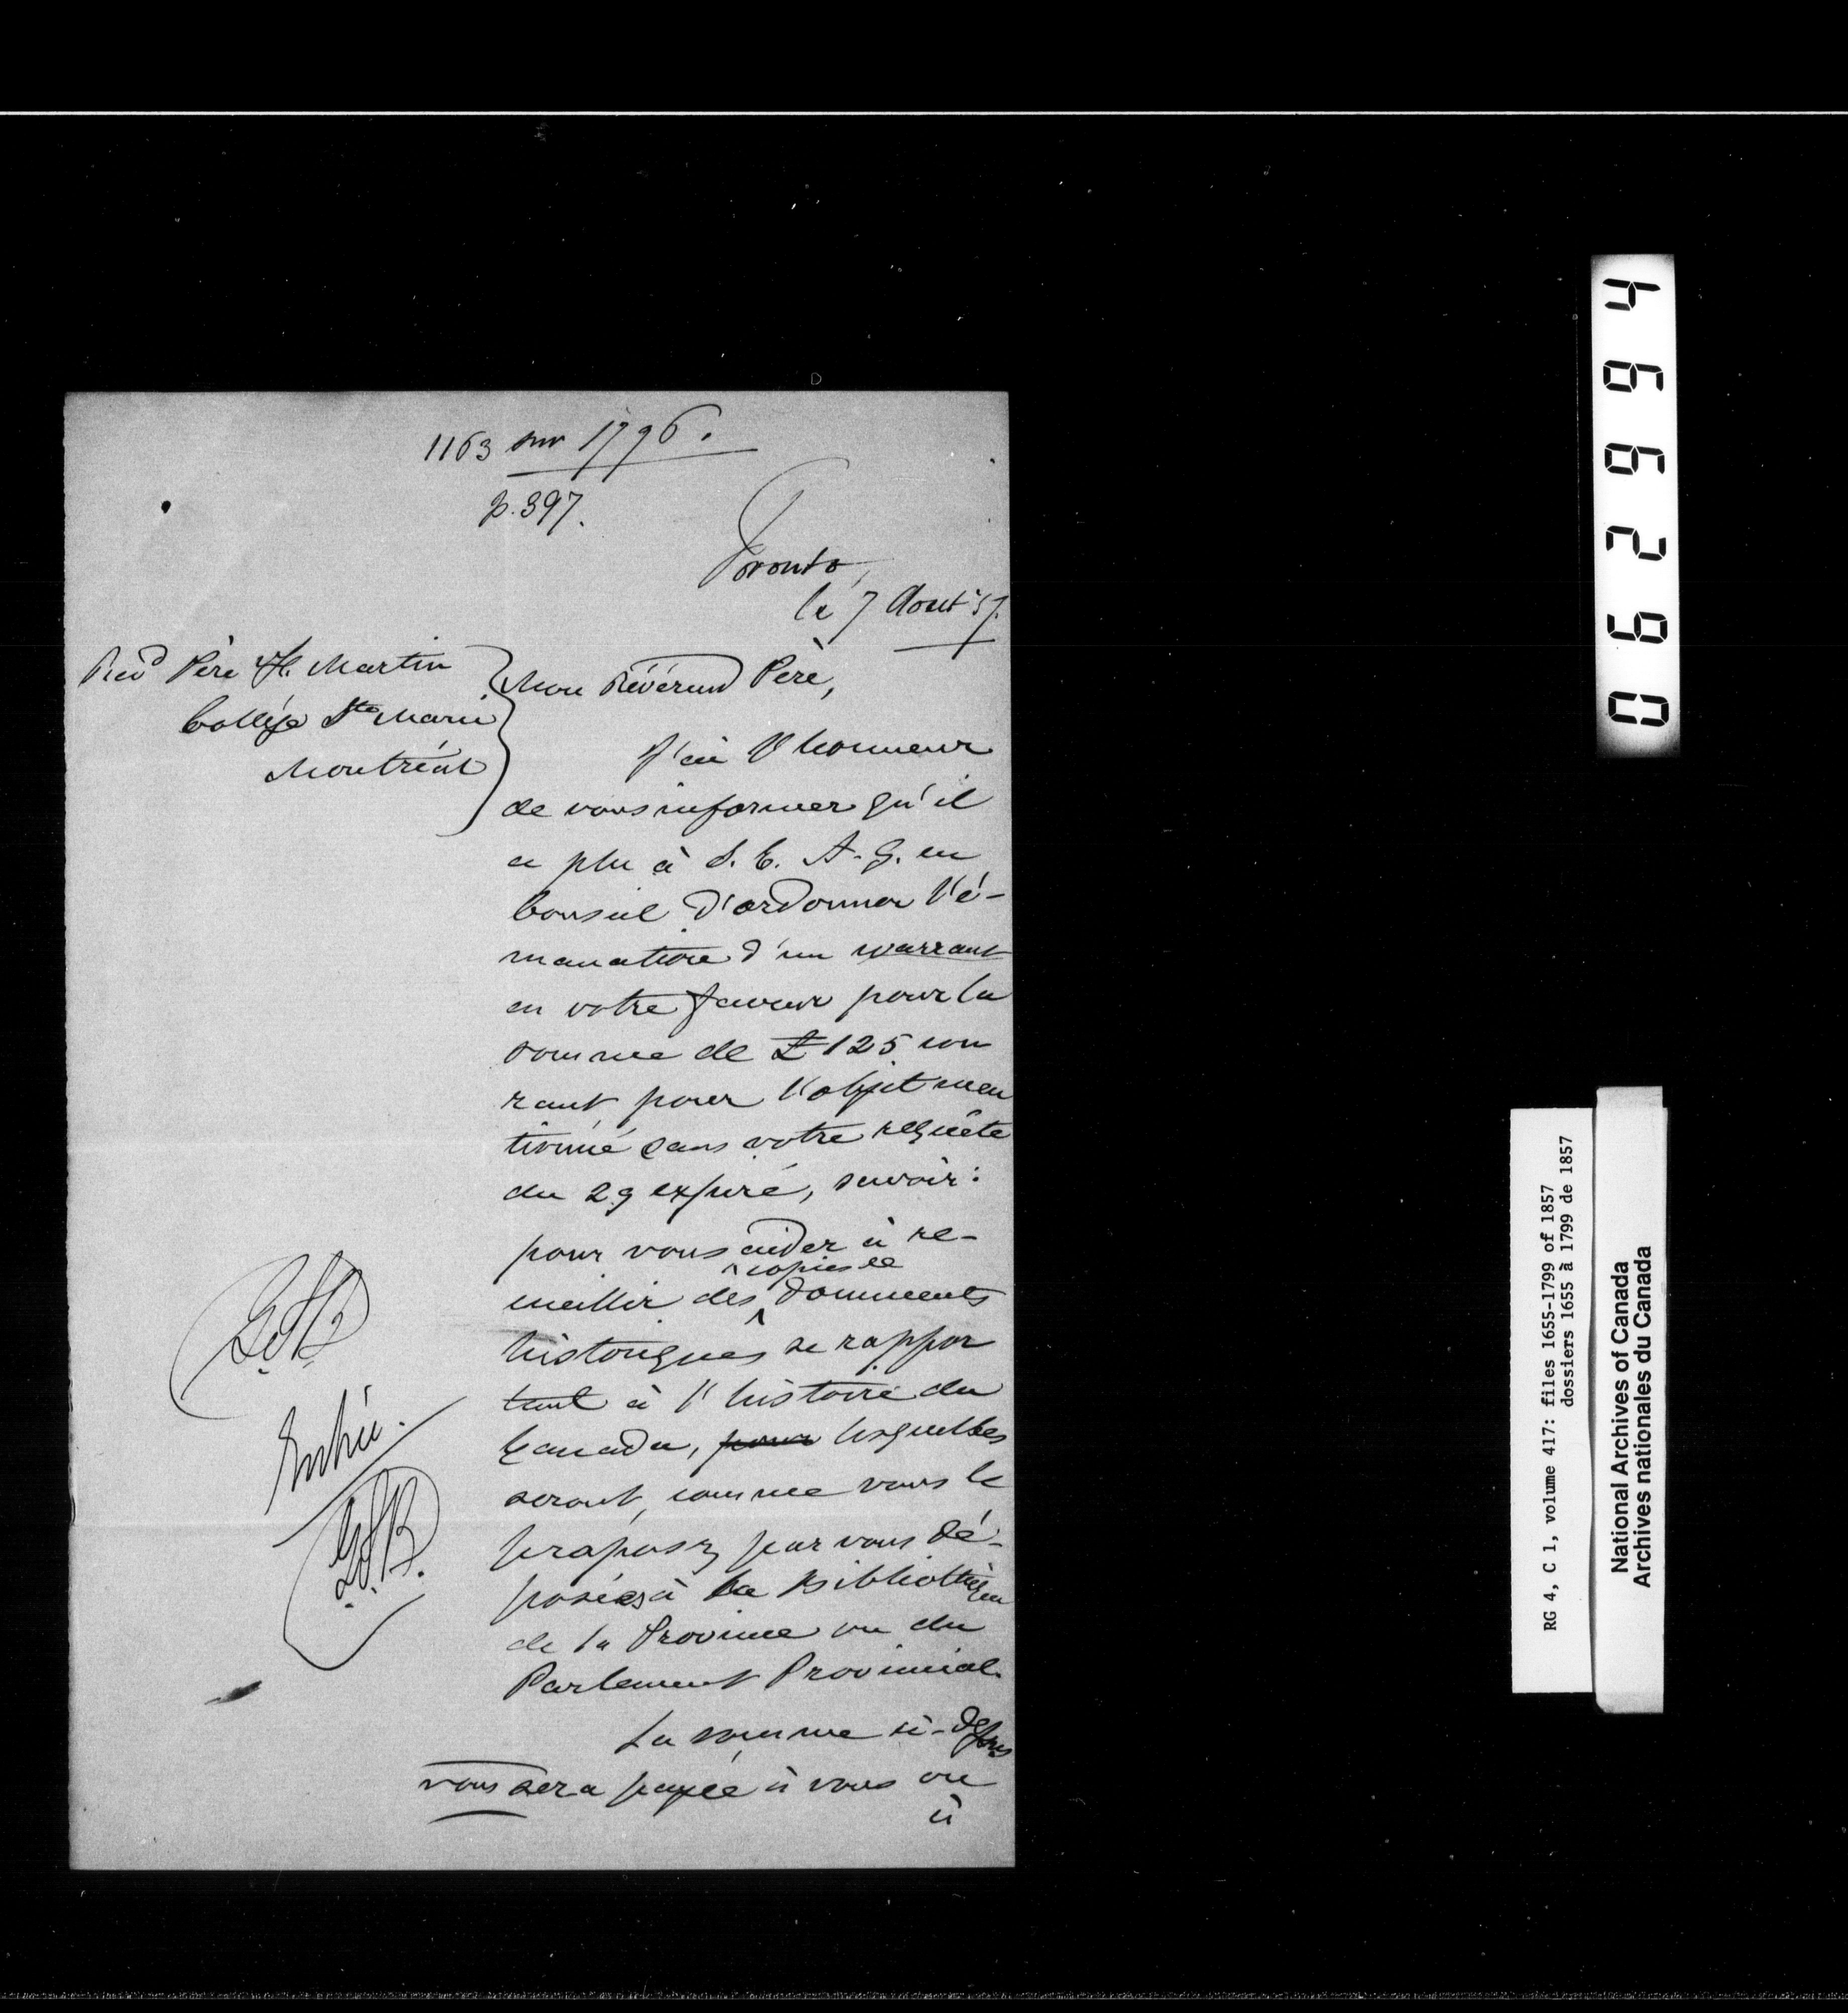 1163 sur 1796.
p. 397.
Toronto,
le 7 Aout '57.
Revd Père F. Martin
Collège Ste Marie
Montréal
Mon Révérend Père,
J'ai l'honneur
de vous informer qu'il
a plu à S. E. A. G. en
Conseil d'ordonner l'é-
manation d'un warrant
en votre faveur pour la
somme de £125 cou
rant pour l'objet men
tionné dans votre requête
du 29 expiré, savoir:
pour vous aider à re-
cueillir des copies de documents
historiques se rappor
tant à l'histoire du
Canada, pour lesquelles
seront, comme vous le
proposez par vous dé-
posées à la Bibliothèque
de la Province ou du
Parlement Provincial.
La somme ci-dessus
vous sera payée à vous ou
à
Entrée.
46290
RG 4, C 1, volume 417: files 1655-1799 of 1857
dossiers 1655 à 1799 de 1857
National Archives of Canada
Archives nationales du Canada